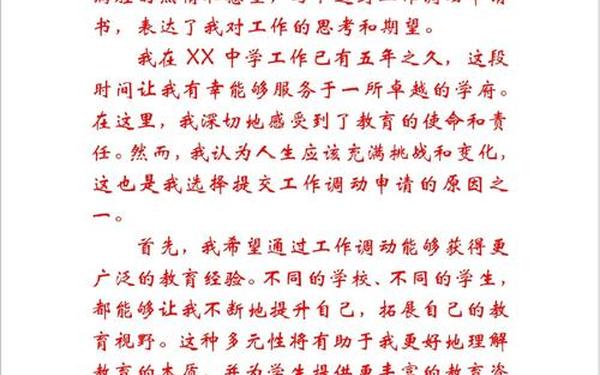 满腔的热情和愿望，写下这封工作调动申请
书，表达了我对工作的思考和期望。
我在 XX 中学工作已有五年之久，这段
时间让我有幸能够服务于一所卓越的学府。
在这里，我深切地感受到了教育的使命和责
任。然而，我认为人生应该充满挑战和变化，
这也是我选择提交工作调动申请的原因之
一。
首先，我希望通过工作调动能够获得更
广泛的教育经验。不同的学校、不同的学生，
都能够让我不断地提升自己，拓展自己的教
育视野。这种多元性将有助于我更好地理解
教育的本质，并为学生提供更丰富的教育资